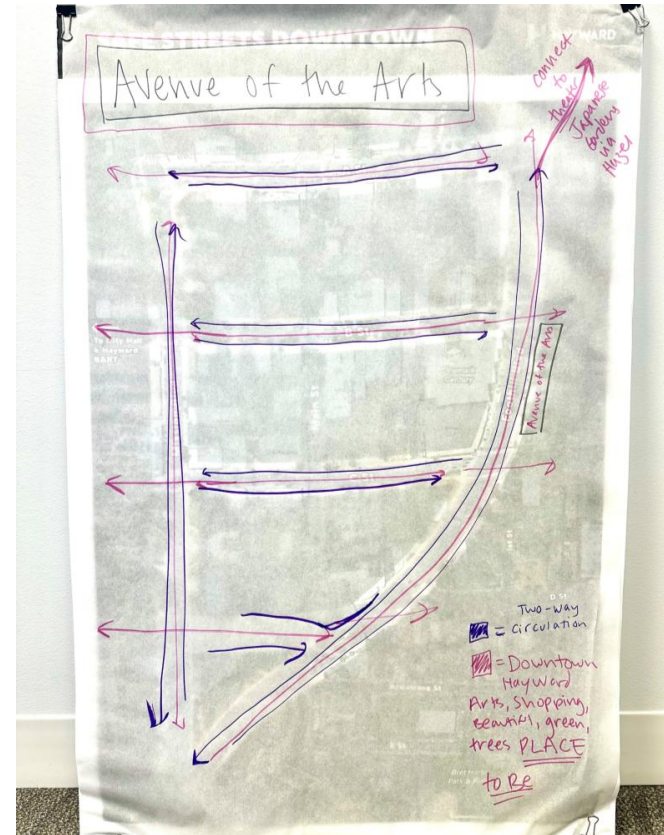 STREETS DOWNTOWN
HAYWARD
Avenue of the Arts
connect
to
theater
Japanese
Gardens
via
Hazel
To City Hall
& Hayward
BART
Main St
Avenue of the Arts
D St
Two-way
= Circulation
= Downtown
Hayward
Arts, Shopping,
Beautiful, green,
trees PLACE
to Be